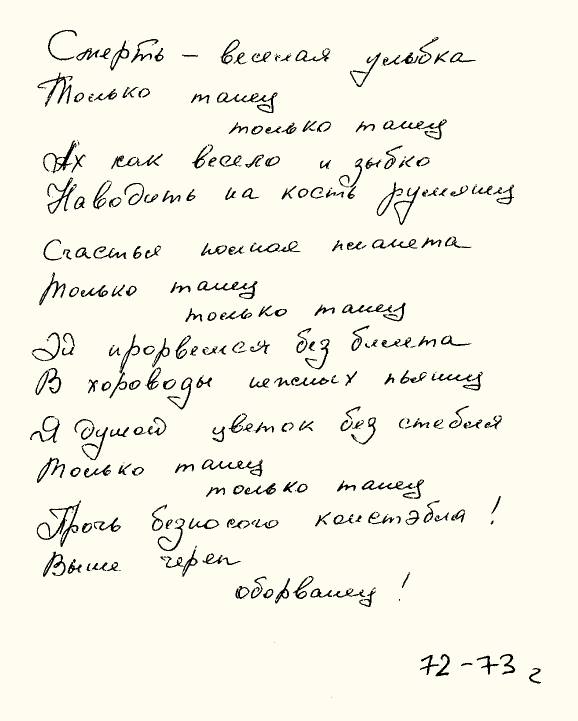 Смерть – веселая улыбка
Только танец
только танец
Ах как весело и зыбко
Наводить на кость румянец
Счастья полная планета
Только танец
только танец
Эй прорвемся без билета
В хороводы нежных пьяниц
Я душой цветок без стебля
Только танец
только танец
Прочь безносого констэбля !
Выше череп
оборванец !
72–73 г